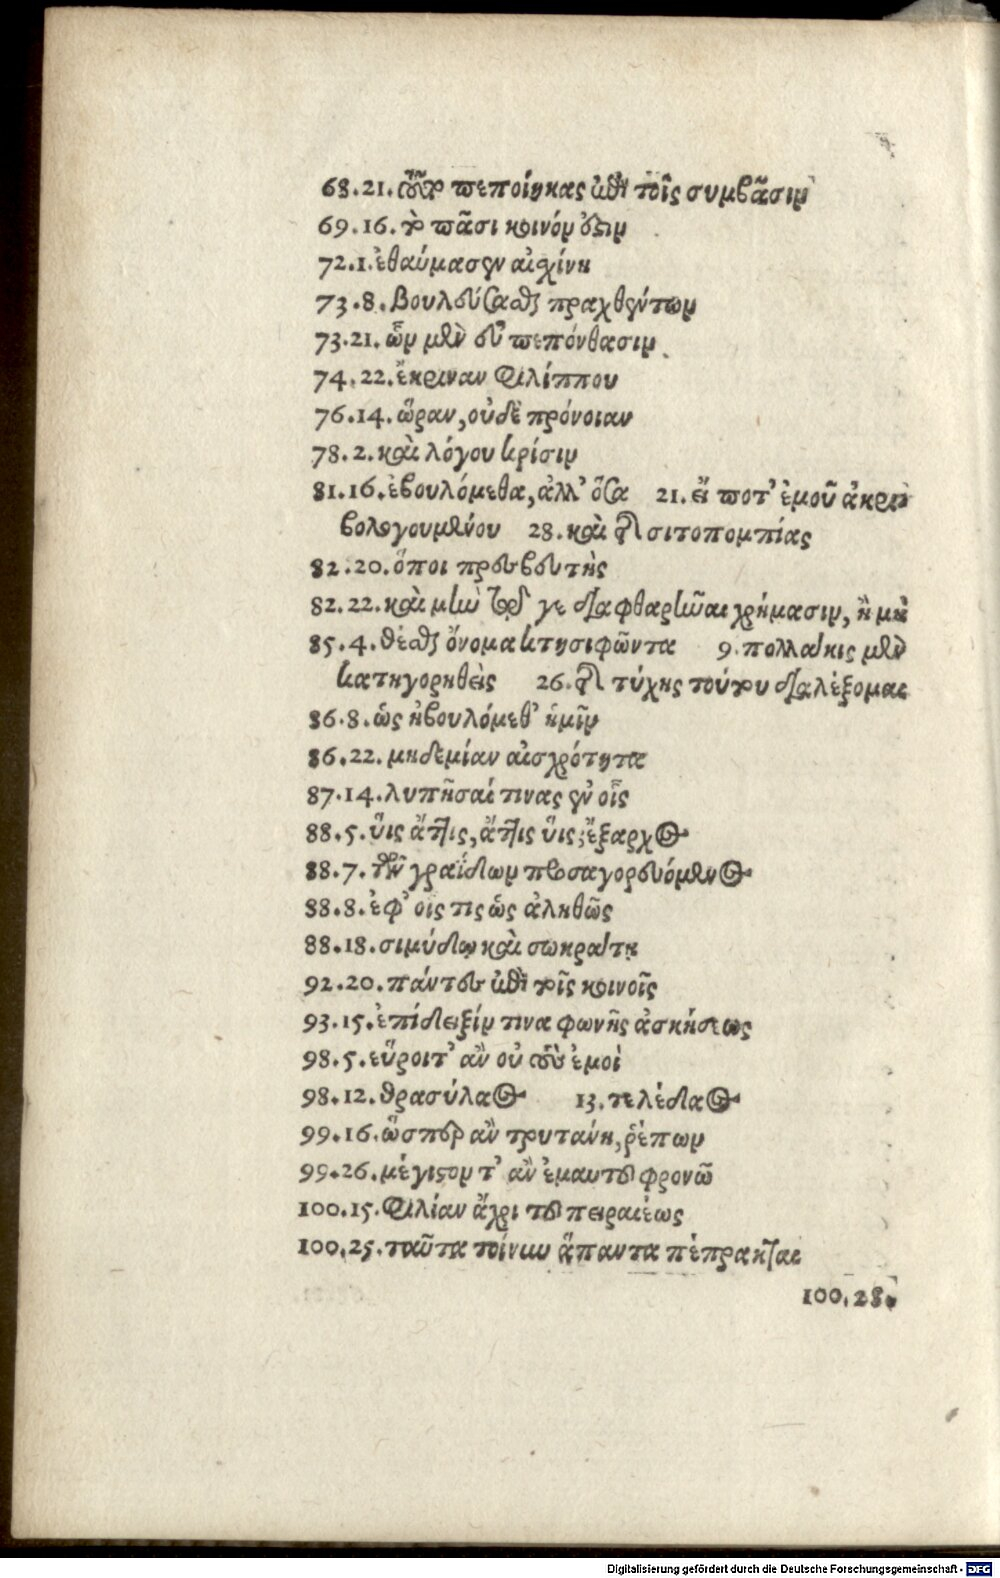 68.21. τοῦτο πεποίηκας ἐπὶ τοῖς συμβᾶσιν
69.16. τὸ πᾶσι κοινόν ὅτιν
72.1. ἐθαύμασεν αἰσχίνη
73.8. Βουλεύσασθαι πραχθέντων
73.21. ὧν μὲν εὖ πεπόνθασιν
74.22. ἔκριναν Φιλίππου
76.14. ὥραν, οὐδὲ πρόνοιαν
78.2. καὶ λόγου κρίσιν
81.16. ἐβουλόμεθα, ἀλλ' ὅσα 21. εἴ ποτ' ἐμοῦ ἀκρι
βολογουμένου 28. καὶ περὶ σιτοπομπίας
82.20. ὅποι πρεσβευτὴς
82.22. καὶ μὴν τῷ γε διαφθαρῆναι χρήμασιν, ἢ μὴ
85.4. θέσθαι ὄνομα κτησιφῶντα 9. πολλάκις μὲν
κατηγορηθεὶς 26. περὶ τύχης τούτου διαλέξομαι
86.8. ὡς ἠβουλόμεθ' ἡμῖν
86.22. μηδεμίαν αἰσχρότητα
87.14. λυπῆσαί τινας ἐν οἷς
88.5. ὕις ἄττης, ἄττης ὕις, ἔξαρχος
88.7. τῶν γραϊδίων προσαγορευόμενος
88.8. ἐφ' οις τις ὡς ἀληθῶς
88.18. σιμύλῳ καὶ σωκράτη
92.20. πάντες ἐπὶ τοῖς κοινοῖς
93.15. ἐπίδειξίν τινα φωνῆς ἀσκήσεως
98.5. εὕροιτ' ἂν οὐ σὺ ἐμοὶ
98.12. θρασύλαος 13. τελέδαος
99.16. ὥσπερ ἂν τρυτάνη, ῥέπων
99.26. μέγιστον τ' ἂν ἐμαυτοῦ φρονῶ
100.15. Φιλίαν ἄχρι τοῦ πειραιέως
100.25. ταῦτα τοίνυν ἅπαντα πέπρακται
100.28.
Digitalisierung gefördert durch die Deutsche Forschungsgemeinschaft - DFG